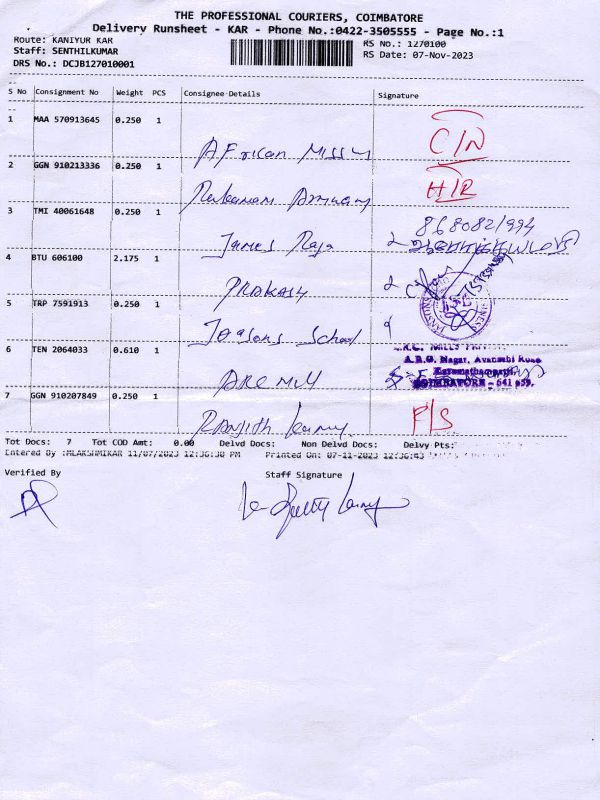 THE PROFESSIONAL COURIERS, COIMBATORE
Delivery Runsheet - KAR - Phone No.:0422-3505555 - Page No.:1
Route: KANIYUR KAR RS No.: 1270100
Staff: SENTHILKUMAR RS Date: 07-Nov-2023
DRS No.: DCJB127010001
S No Consignment No Weight PCS Consignee Details Signature
1 MAA 570913645 0.250 1 African Missn C/N
2 GGN 910213336 0.250 1 H/R
3 TMI 40061648 0.250 1 James Raja 868082/994
4 BTU 606100 2.175 1 PRAKASH
5 TRP 7591913 0.250 1 School
6 TEN 2064033 0.610 1 ARC Mill
A.R.C. Nagar,
COIMBATORE - 641 659.
7 GGN 910207849 0.250 1 Ranjith Kumar F/S
Tot Docs: 7 Tot COD Amt: 0.00 Delvd Docs: Non Delvd Docs: Delvy Pts:
Entered By :MLAKSHMIKAR 11/07/2023 12:36:30 PM Printed On: 07-11-2023 12:36:43
Verified By Staff Signature